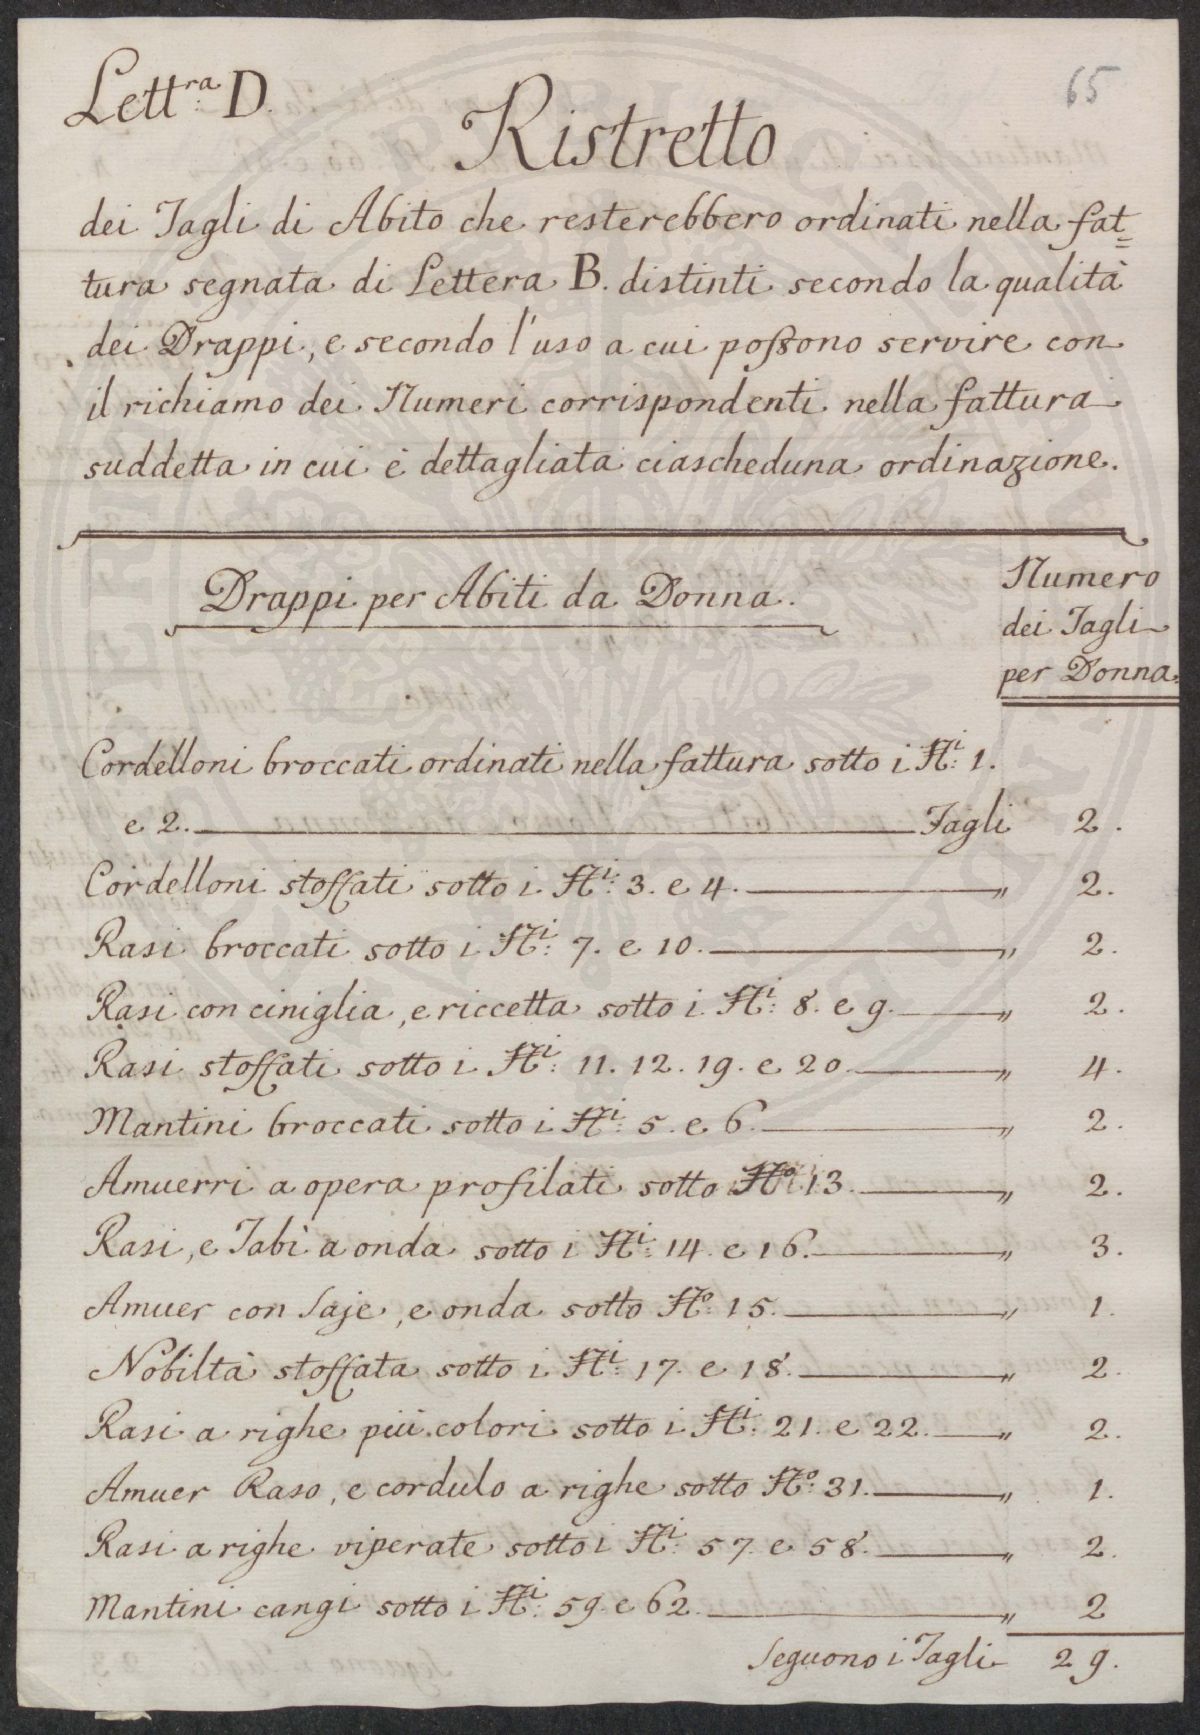 65
Lett.ra D.
Ristretto
dei Tagli di Abito che resterebbero ordinati nella fat=
tura segnata di Lettera B. distinti secondo la qualità
dei Drappi, e secondo l'uso a cui possono servire con
il richiamo dei Numeri corrispondenti nella fattura
suddetta in cui è dettagliata ciascheduna ordinazione.
Drappi per Abiti da Donna.
Numero
dei Tagli
per Donna.
Cordelloni broccati ordinati nella fattura sotto i Ni: 1.
e 2. Tagli 2.
Cordelloni stoffati sotto i Ni: 3. e 4. " 2.
Rasi broccati sotto i Ni: 7. e 10. " 2.
Rasi con ciniglia, e riccetta sotto i Ni: 8. e 9. " 2.
Rasi stoffati sotto i Ni: 11. 12. 19. e 20. " 4.
Mantini broccati sotto i Ni: 5. e 6. " 2.
Amuerri a opera profilati sotto No 13. " 2.
Rasi, e Tabì a onda sotto i Ni: 14. e 16. " 3.
Amuer con Saje, e onda sotto No: 15. " 1.
Nobiltà stoffata sotto i Ni: 17. e 18. " 2.
Rasi a righe più colori sotto i Ni: 21. e 22. " 2.
Amuer Raso, e cordulo a righe sotto No: 31. " 1.
Rasi a righe viperate sotto i Ni: 57. e 58. " 2.
Mantini cangi sotto i Ni: 59. e 62. " 2
Seguono i Tagli 29.